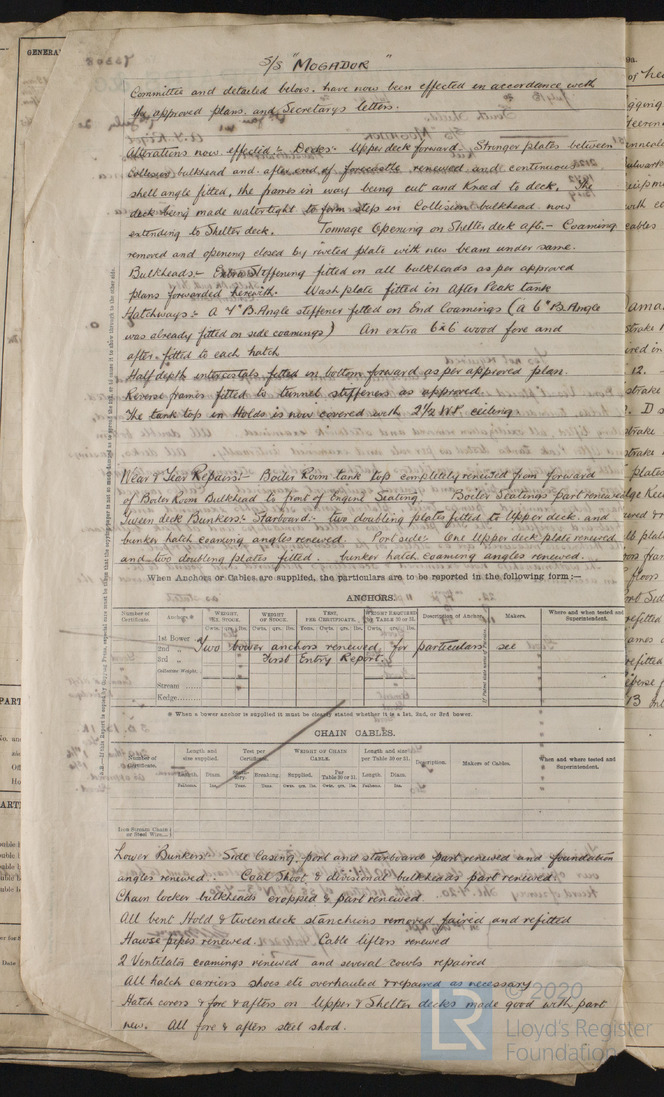 GENERA
S/S "MOGADOR"
Committee and detailed below, have now been effected in accordance with
the approved plans and Secretarys letters.
Alterations now effected:- Decks:- Upper deck forward. Stringer plates between
Collision bulkhead and after end of forecastle renewed and continuous
shell angle fitted, the frames in way being cut and kneed to deck, The
deck being made watertight to form step in Collision bulkhead now
extending to Shelter deck. Tonnage Opening on Shelter deck aft:- Coaming
removed and opening closed by riveted plate with new beam under same.
Bulkheads:- Extra Stiffening fitted on all bulkheads as per approved
plans forwarded herewith. Wash plate fitted in After Peak tank
Hatchways:- A 7" B. Angle stiffener fitted on End Coamings (a 6" B. Angle
was already fitted on side coamings) An extra 6x6 wood fore and
after fitted to each hatch
Half depth intercostals fitted on bottom forward as per approved plan.
Reverse frames fitted to tunnel stiffeners as approved.
The tank top in Holds is now covered with 2½ W.P. ceiling
Wear & Tear Repairs:- Boiler Room tank top completely renewed from forward
of Boiler Room Bulkhead to front of Engine Seating. Boiler Seatings part renewed
Tween deck Bunkers:- Starboard:- two doubling plates fitted to Upper deck and
bunker hatch coaming angles renewed. Port side:- One Upper deck plate renewed
and two doubling plates fitted. bunker hatch coaming angles renewed.
When Anchors or Cables are supplied, the particulars are to be reported in the following form:—
ANCHORS.
Number of Certificate. Anchors WEIGHT, EX. STOCK. WEIGHT OF STOCK. TEST, PER CERTIFICATE. WEIGHT REQUIRED PER TABLE 20 or 21. Description of Anchor Makers. Where and when tested and Superintendent.
Cwts. qrs. lbs. Cwts. qrs. lbs. Tons. Cwts. qrs. lbs. Cwts. qrs. lbs.
1st Bower
2nd " Two bower anchors renewed, for particulars see
3rd " First Entry Report.
Stream
Kedge
* When a bower anchor is supplied it must be clearly stated whether it is a 1st, 2nd, or 3rd bower.
CHAIN CABLES.
Number of Certificate. Length and size supplied. Test per Certificate. WEIGHT OF CHAIN CABLE. Length and size per Table 20 or 21. Description. Makers of Cables. When and where tested and Superintendent.
Length. Diam. Statutory. Breaking. Supplied. Per Table 20 or 21. Length. Diam.
Fathoms. Ins. Tons. Tons. Cwts. qrs. lbs. Cwts. qrs. lbs. Fathoms. Ins.
Iron Stream Chain or Steel Wire
Lower Bunkers:- Side Casing, port and starboard part renewed and foundation
angles renewed. Coal Shoot & divisional bulkheads part renewed.
Chain locker bulkheads cropped & part renewed
All bent Hold & tweendeck stanchions removed faired and refitted
Hawse pipes renewed. Cable lifters renewed
2 Ventilator coamings renewed and several cowls repaired
All hatch carriers shoes etc overhauled & repaired as necessary
Hatch covers & fore & afters on Upper & Shelter decks made good with part
new. All fore & afters steel shod.
© 2020
LR
Lloyd's Register
Foundation